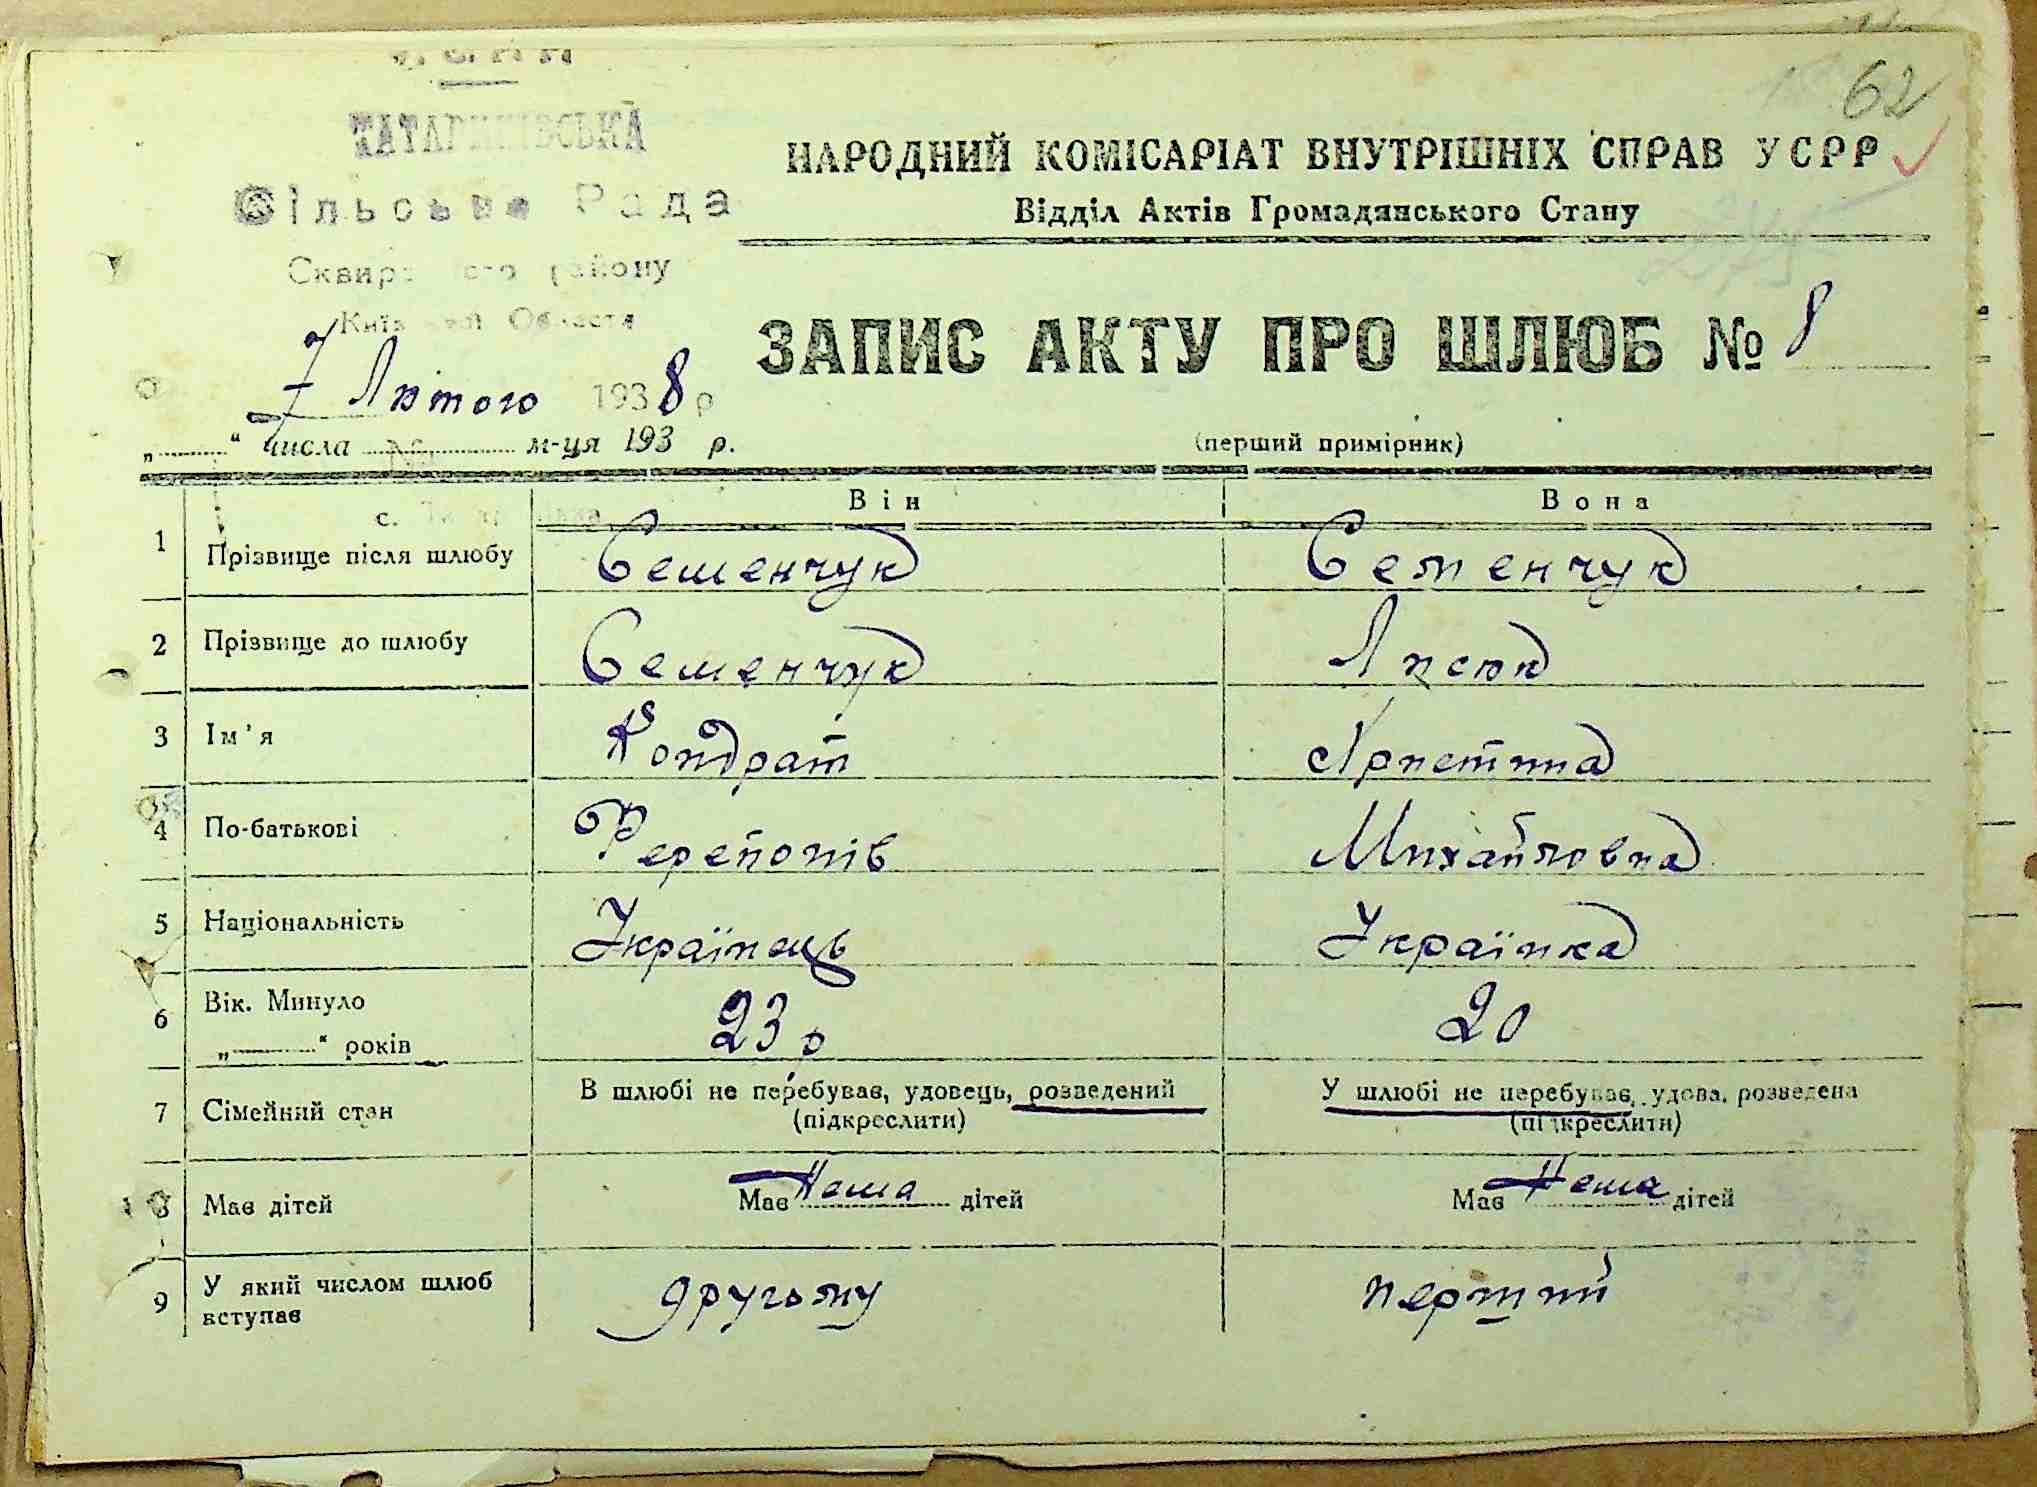 62
ТАТАРИНІВСЬКА
Сільська Рада
Сквирського району
Київської Области
7 Лютого 1938 р
„ “ числа м-ця 193 р.
НАРОДНИЙ КОМІСАРІАТ ВНУТРІШНІХ СПРАВ УСРР
Відділ Актів Громадянського Стану
ЗАПИС АКТУ ПРО ШЛЮБ № 8
(перший примірник)
Він Вона
1 Прізвище після шлюбу Семенчук Семенчук
2 Прізвище до шлюбу Семенчук Лисюк
3 Ім’я Кондрат Христина
4 По-батькові Ферепонів Михайловна
5 Національність Українець Українка
6 Вік. Минуло
„ “ років 23 р 20
7 Сімейний стан В шлюбі не перебував, удовець, розведений У шлюбі не перебував, удова, розведена
(підкреслити) (підкреслити)
8 Має дітей Має Нема дітей Має Нема дітей
9 У який числом шлюб
вступає другому перший